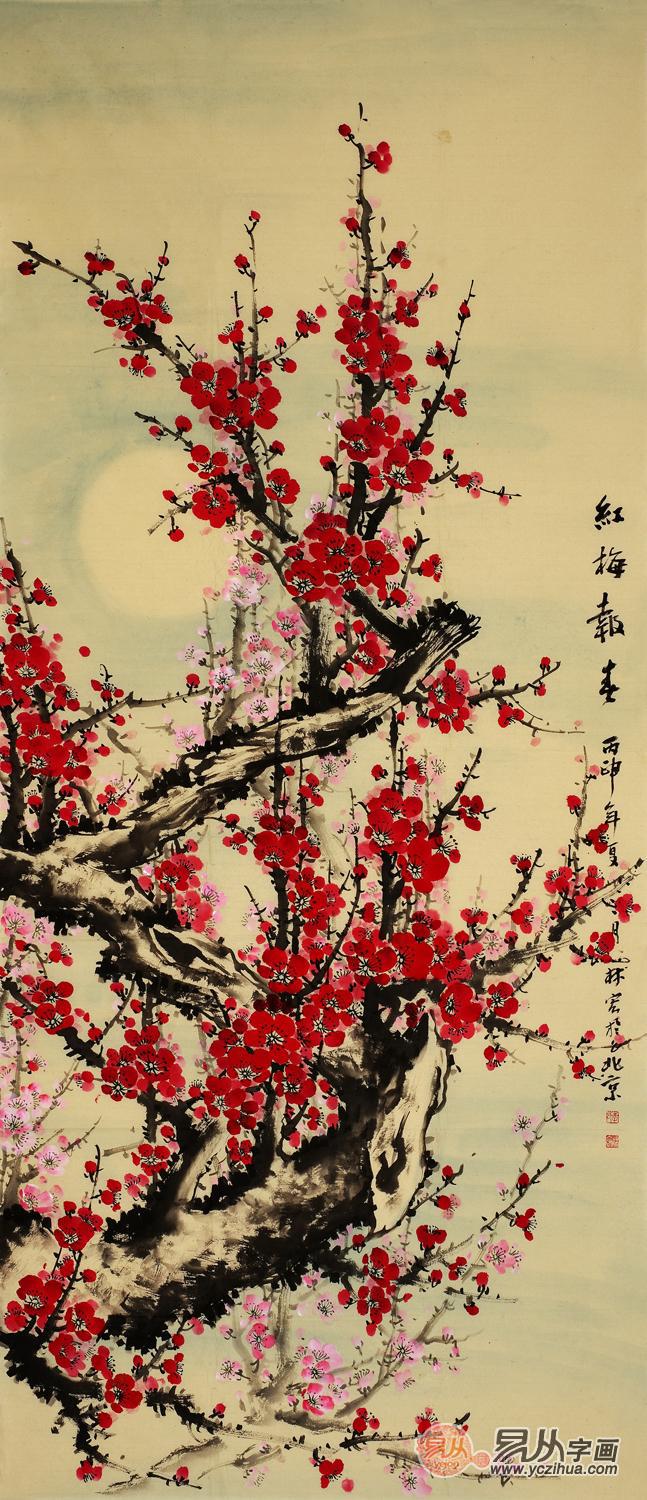 紅梅報春
丙申年夏月林宏於北京
易从
ycop
易从字画
www.yczihua.com